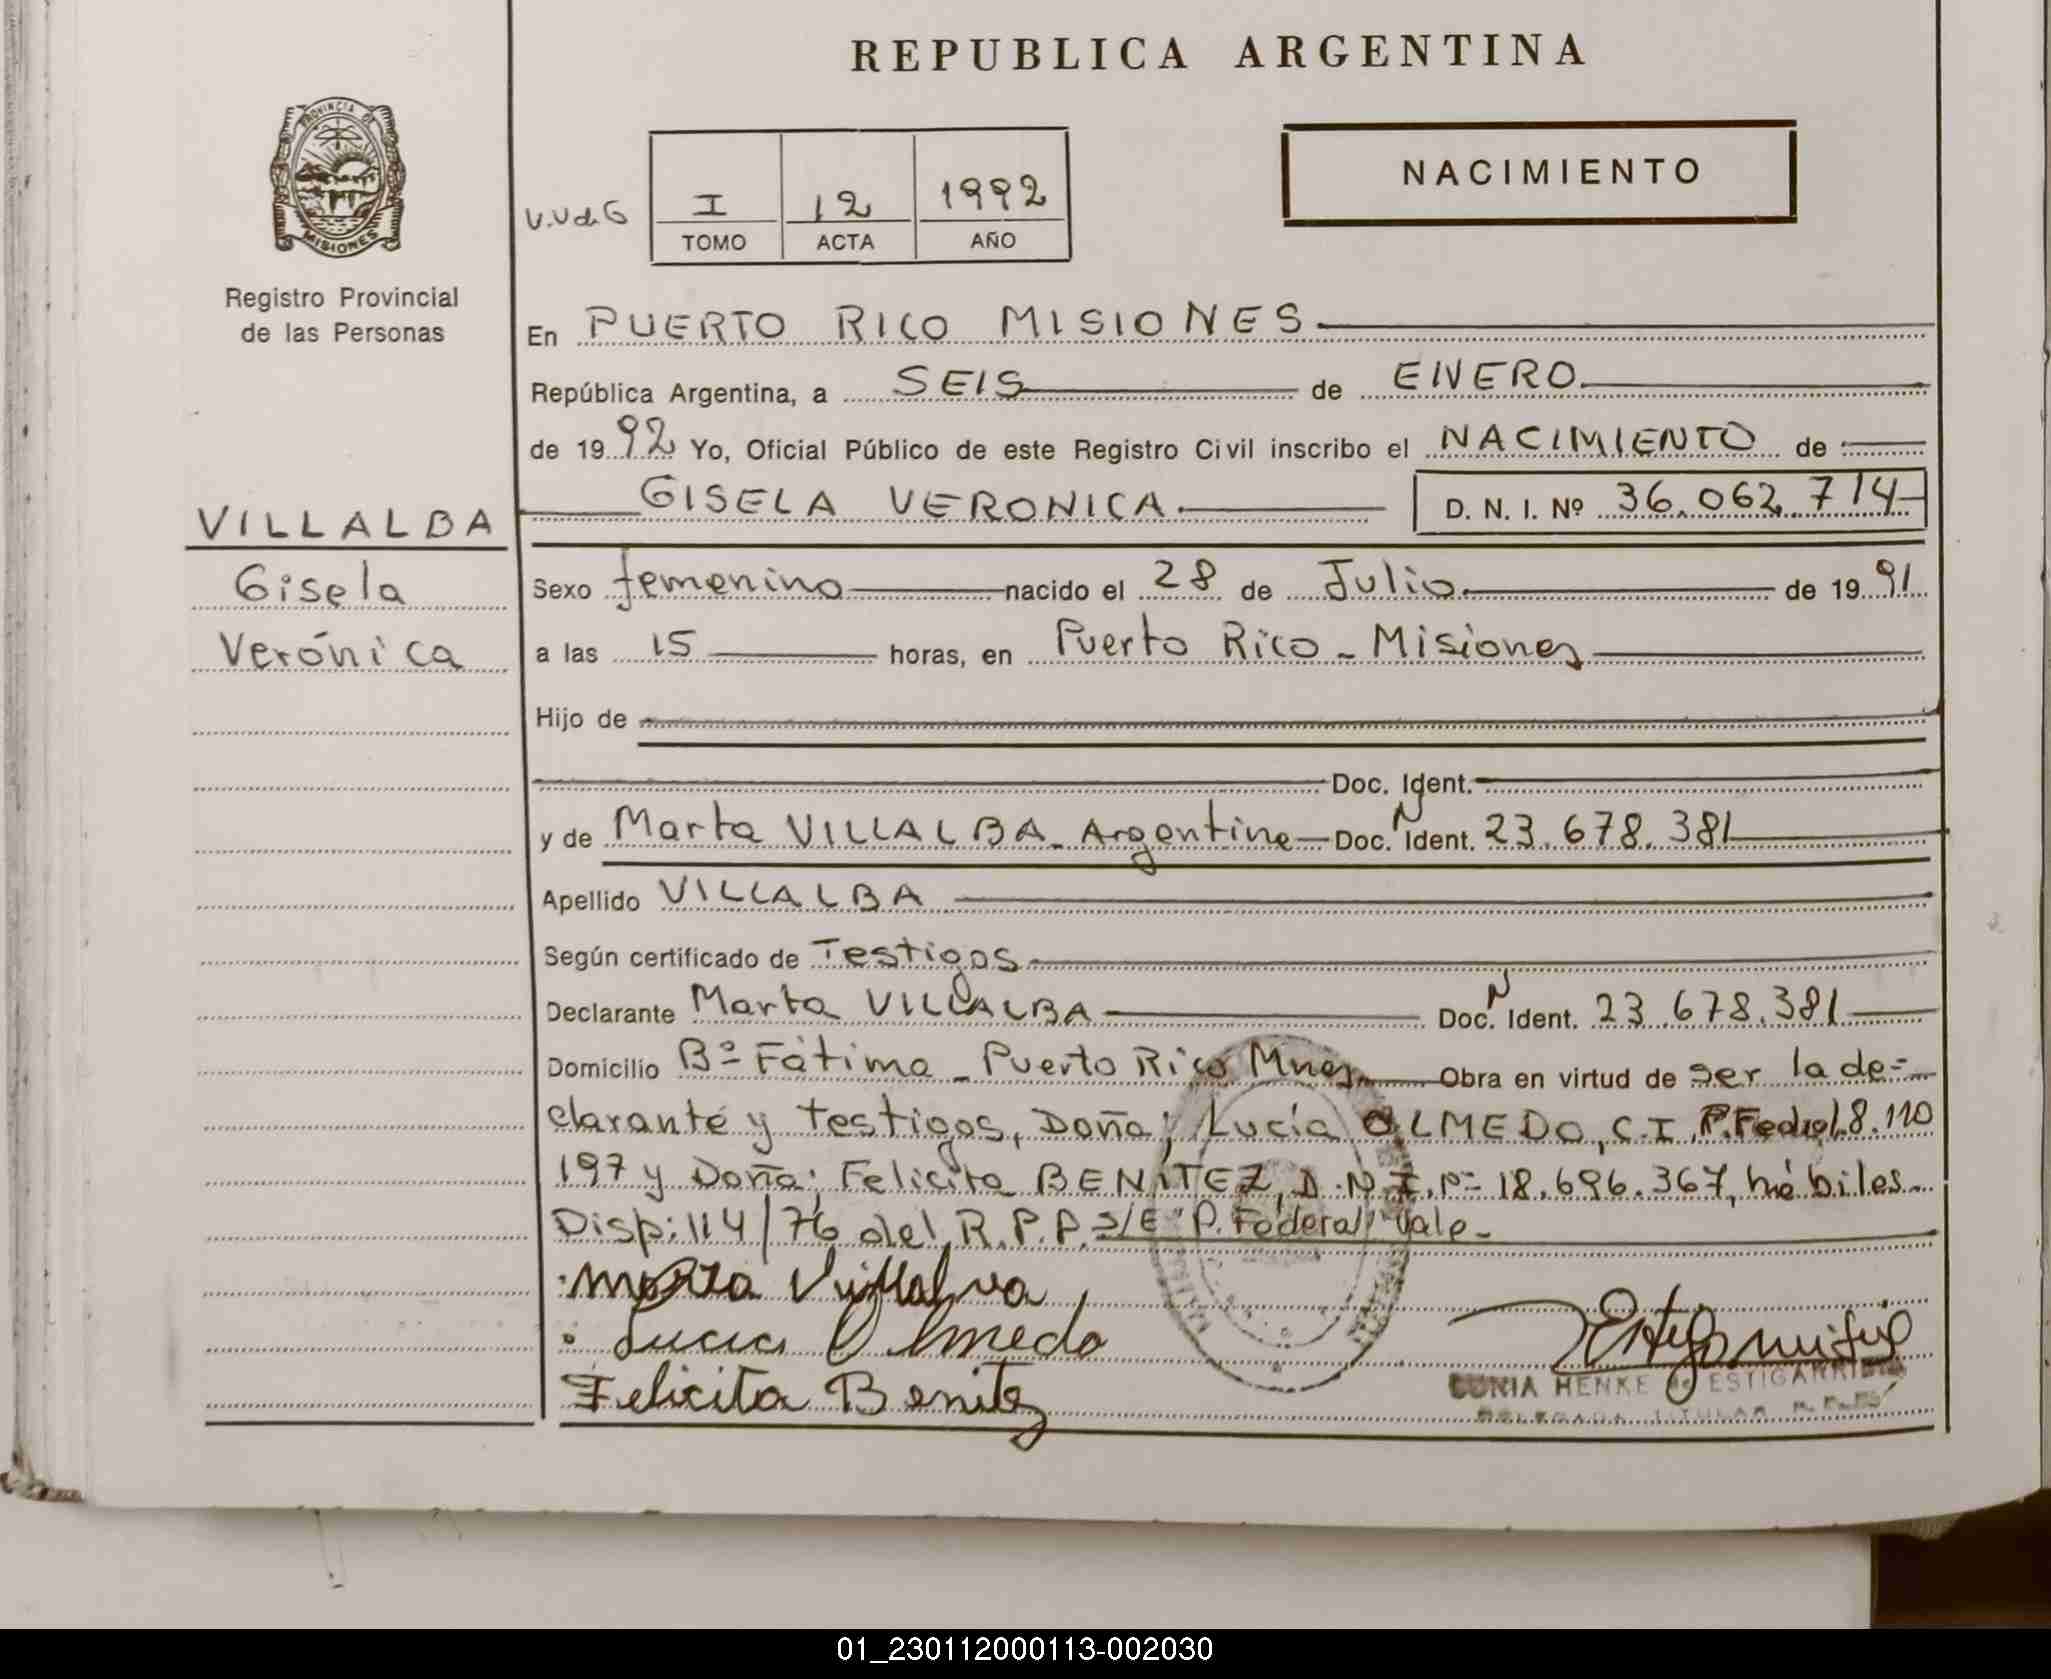 REPUBLICA ARGENTINA
PROVINCIA DE
MISIONES
Registro Provincial
de las Personas
NACIMIENTO
V.V de G
I 12 1992
TOMO ACTA AÑO
En PUERTO RICO MISIONES
República Argentina, a SEIS de ENERO
de 1992 Yo, Oficial Público de este Registro Civil inscribo el NACIMIENTO de
GISELA VERONICA D. N. I. Nº 36.062.714
VILLALBA
Gisela
Verónica
Sexo femenino nacido el 28 de Julio de 1991
a las 15 horas, en Puerto Rico - Misiones
Hijo de
Doc. Ident.
y de Marta VILLALBA - Argentina - Doc. N Ident. 23.678.381
Apellido VILLALBA
Según certificado de Testigos
Declarante Marta VILLALBA Doc. N Ident. 23.678.381
Domicilio Bº Fátima - Puerto Rico Mnes Obra en virtud de ser la de=
clarante y testigos, Doña; Lucía OLMEDO, C.I. P.Federal 8.110
197 y Doña; Felicita BENÍTEZ, D.N.I. nº 18.696.367, hábiles
Disp: 114/76 del R.P.P. S/E "P. Federal" Vale -
Marta Villalva
Lucia Olmedo
Felicita Benitez
SUNIA HENKE de ESTIGARRIBIA
DELEGADA TITULAR
01_230112000113-002030